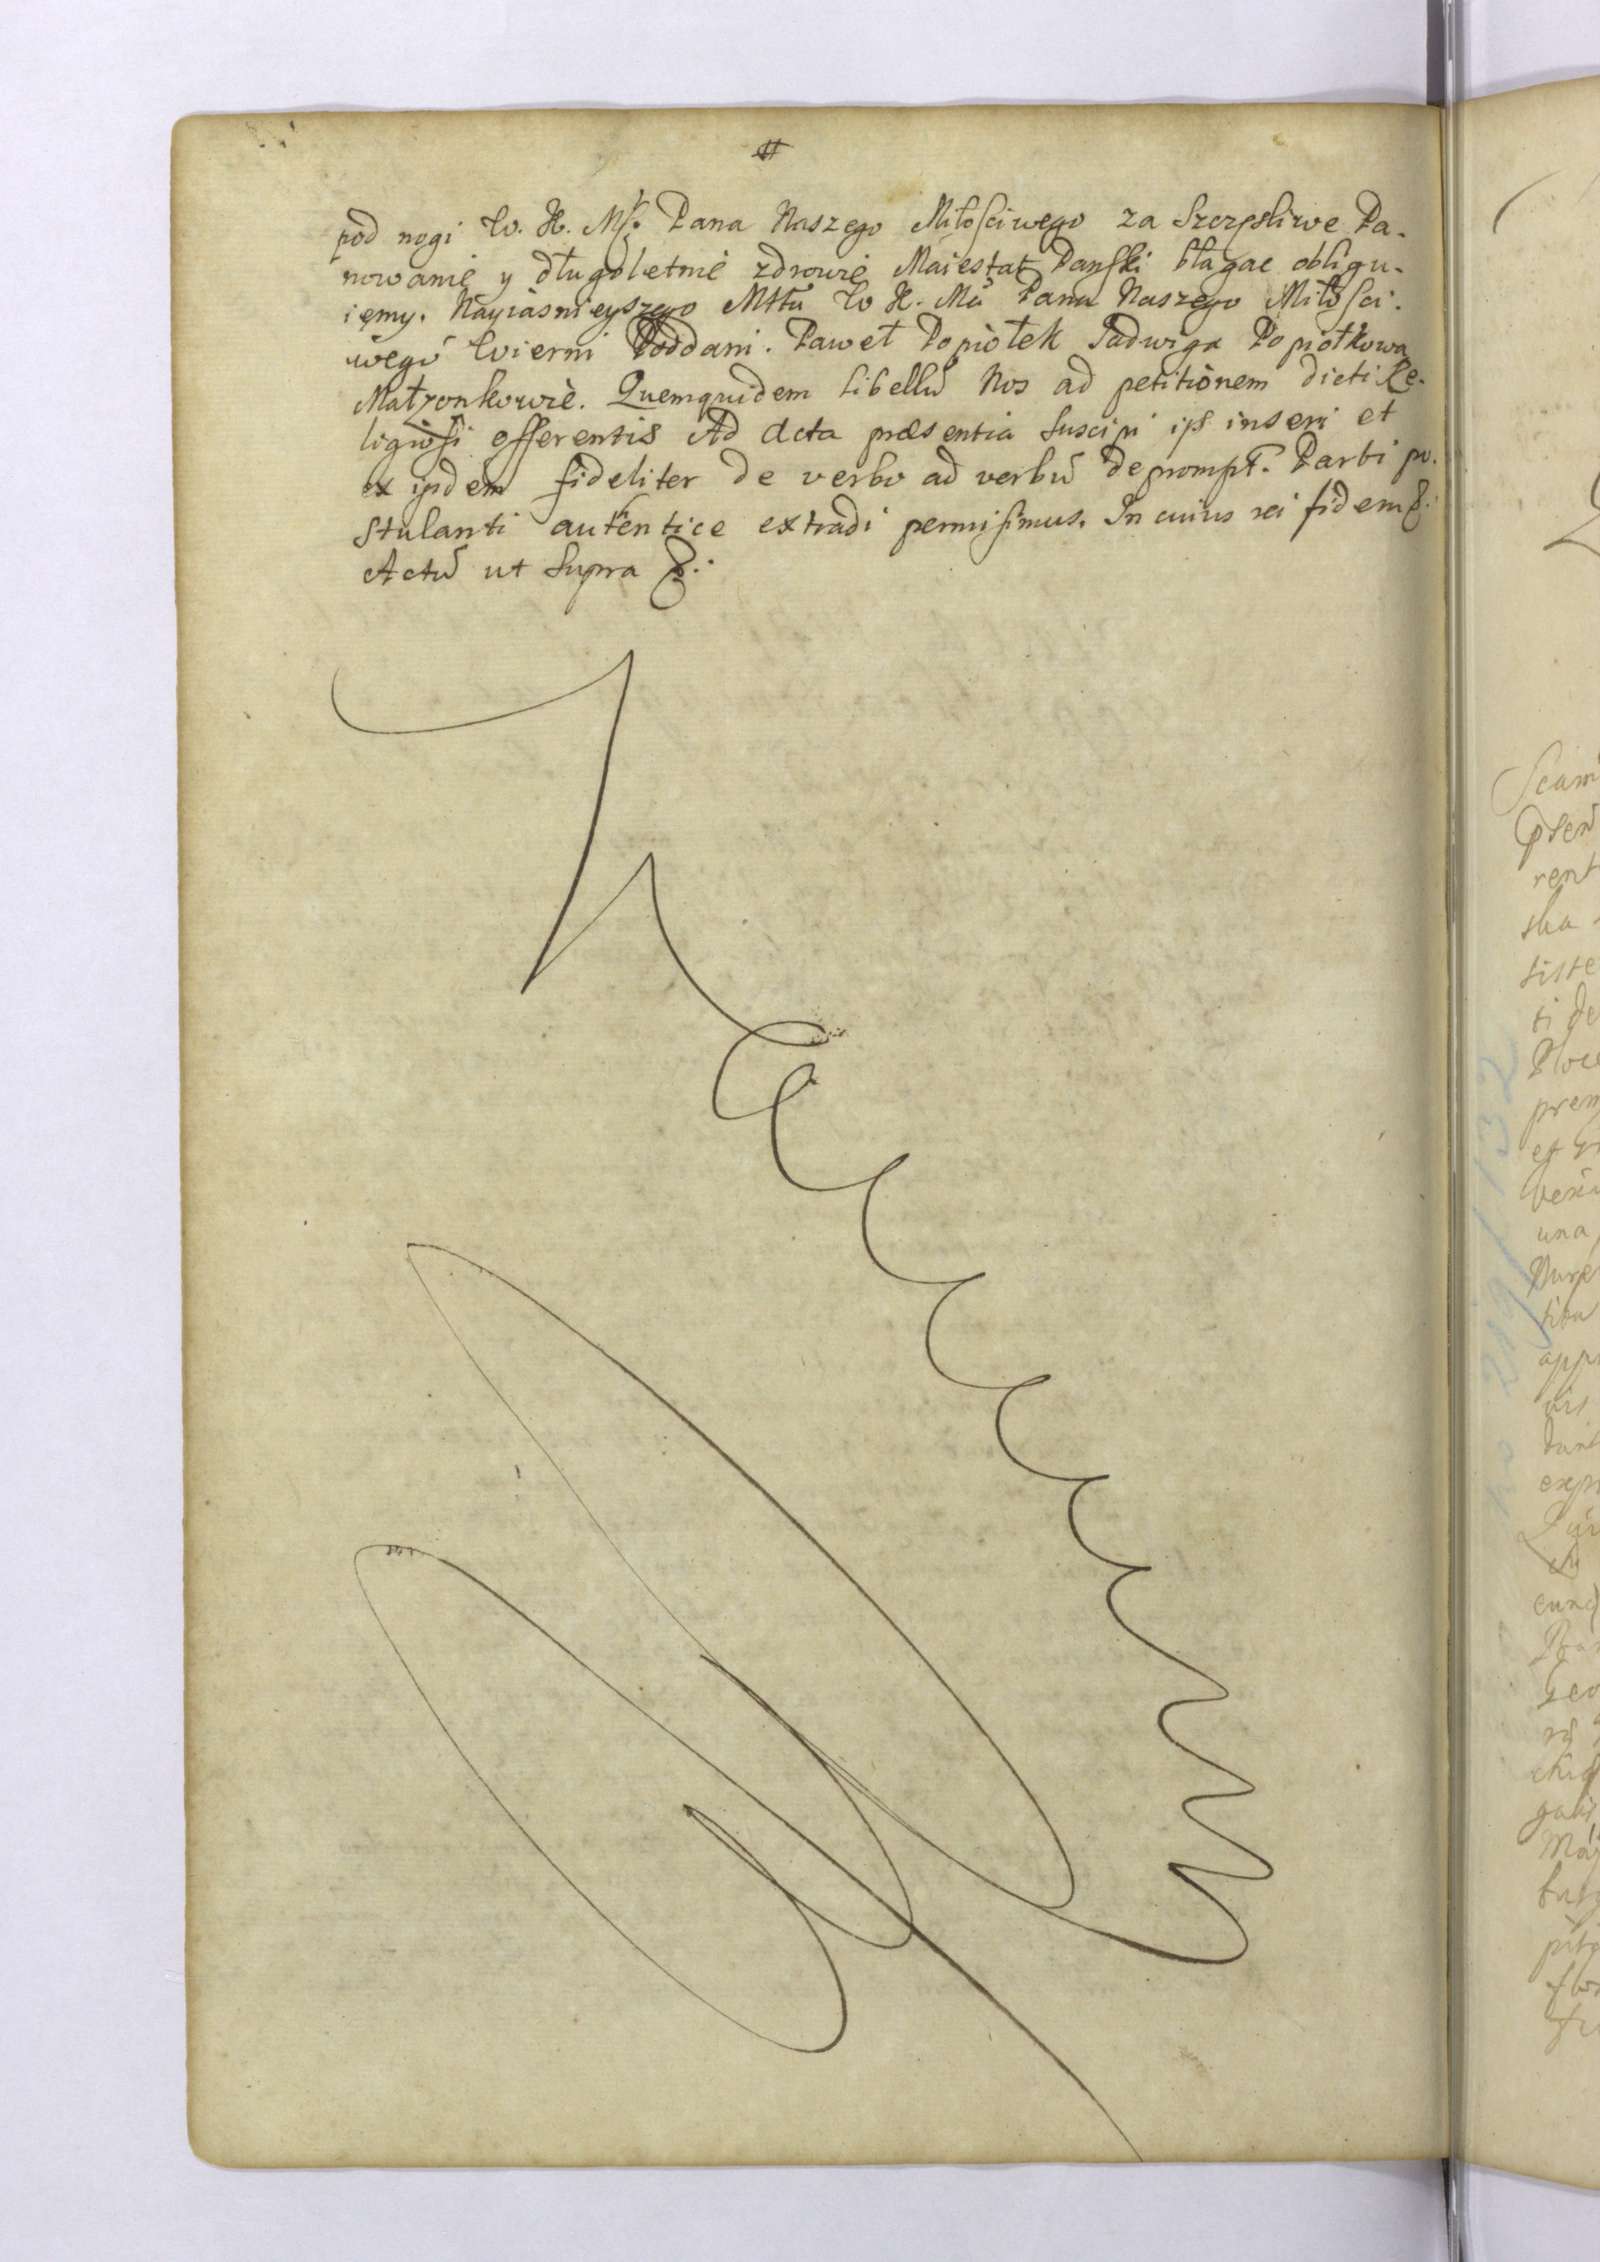 pod nogi W. K. Mś. Pana Naszego Miłościwego za Szczęsliwe Pa-
nowanie y długoletnie zdrowie Maiestat Panski błagac obligu-
iemy. Nayiasnieyszego Mttu W K. Mci Pana Naszego Miłości-
wego Wierni Poddani. Paweł Popiołek Jadwiga Popiołkowa
Małzonkowie. Quemquidem libellũ Nos ad petitionem dicti Re-
ligiosi offerentis Ad Acta præsentia Suscipi ips inseri et
ex ijsdem fideliter de verbo ad verbũ deprompt. Parti po-
stulanti autentice extradi permisimus. In cuius rei fidem &.
Actũ ut Supra &.
Scam
psen
rent
ska
siste
ti de
Ploce
prem
et
una
appr
vis
expr
cunq